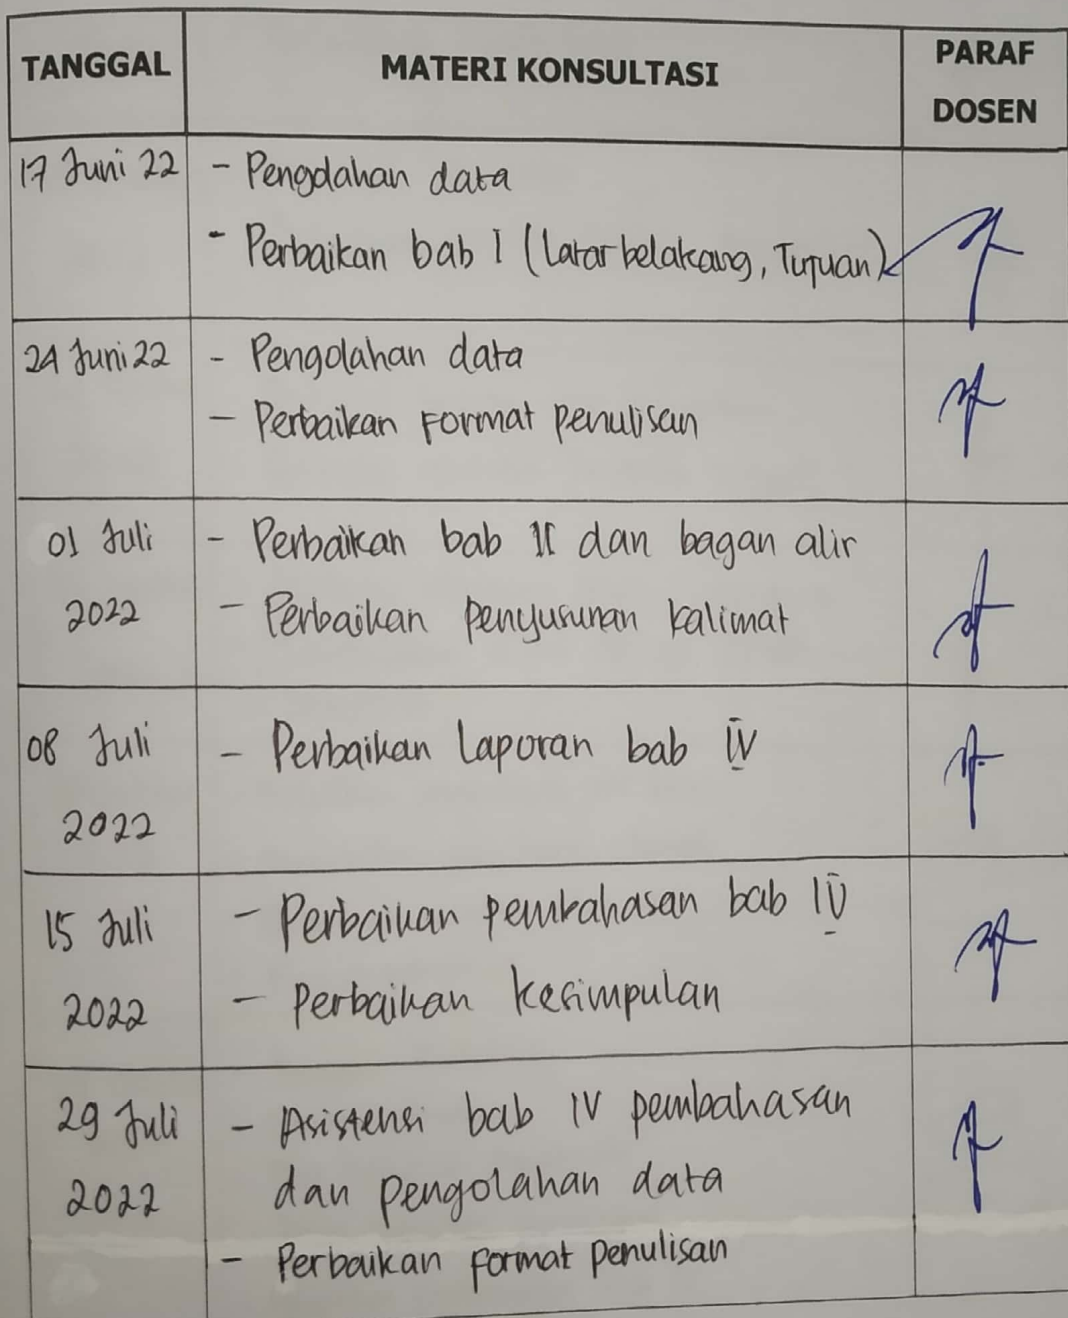 TANGGAL MATERI KONSULTASI PARAF DOSEN
17 Juni 22 - Pengolahan data
- Perbaikan bab I (Latar belakang, Tujuan)
24 Juni 22 - Pengolahan data
- Perbaikan Format penulisan
01 Juli - Perbaikan bab II dan bagan alir
2022 - Perbaikan penyusunan kalimat
08 Juli - Perbaikan Laporan bab IV
2022
15 Juli - Perbaikan pembahasan bab IV
2022 - Perbaikan kesimpulan
29 Juli - Asistensi bab IV pembahasan
2022 dan pengolahan data
- Perbaikan format penulisan